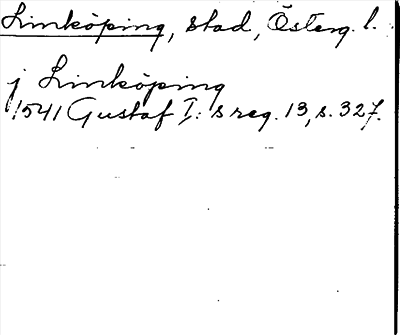 Linköping, stad, Österg. l.
j Linköping
1541 Gustaf I:s reg. 13, s. 327.